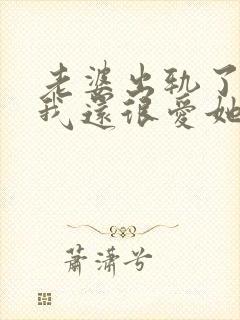 老婆出轨了
我还很爱她
萧潇兮